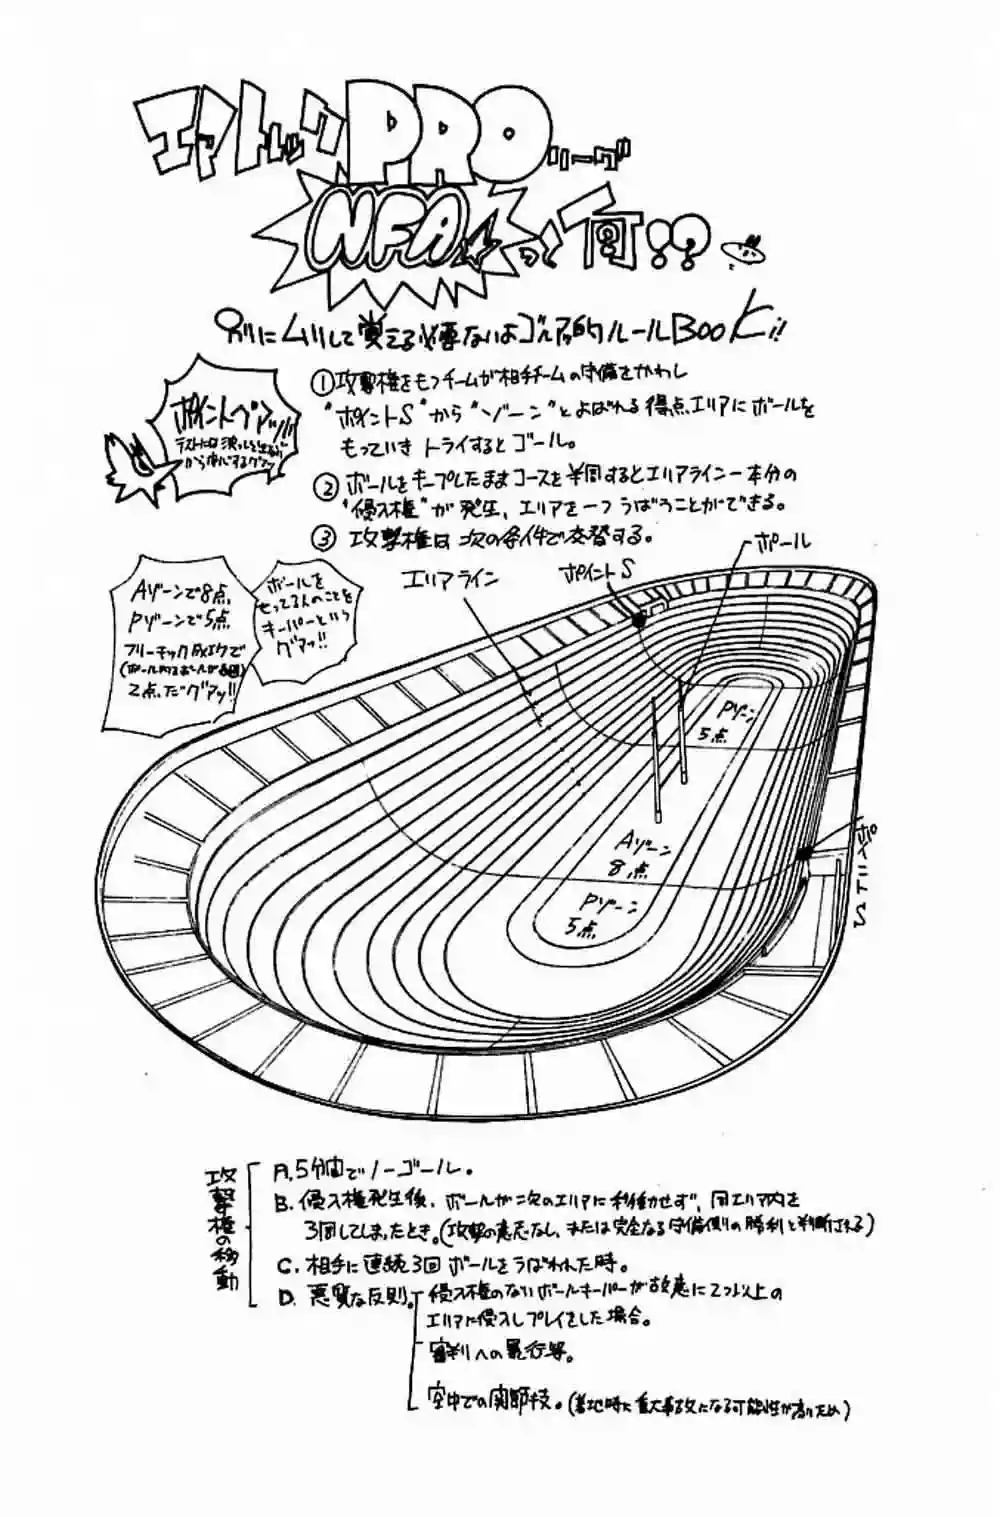 エアトレックPROリーグ
NFA
って何!?
別にムリして覚える必要ないはゴルァ的ルールBOOK!!
①攻撃権をもつチームが相手チームの守備をかわし
"ポイントS"から"ゾーン"とよばれる得点エリアにボールを
もっていきトライするとゴール。
②ボールをキープしたままコースを半周するとエリアライン一本分の
"侵入権"が発生、エリアを一つうばうことができる。
③攻撃権は次の条件で交替する。
Aゾーンで8点、
Pゾーンで5点
2点だグアッ!!
ボールを
もってる人のことを
キーパーという
グアッ!!
エリアライン
ポイントS
ポール
Pゾーン
5点
Aゾーン
8点
Pゾーン
5点
ポイントS
攻撃権の移動
A.5分間でノーゴール。
B.侵入権発生後、ボールが次のエリアに移動せず、同エリア内を
3回してしまったとき。(攻撃の意志なし、または完全なる守備側の勝利と判断される)
C.相手に連続3回ボールをうばわれた時。
D.悪質な反則。侵入権のないボールキーパーが故意に2つ以上の
エリアに侵入しプレイをした場合。
審判への暴行等。
空中での関節技。(着地時に重大事故になる可能性が高いため)